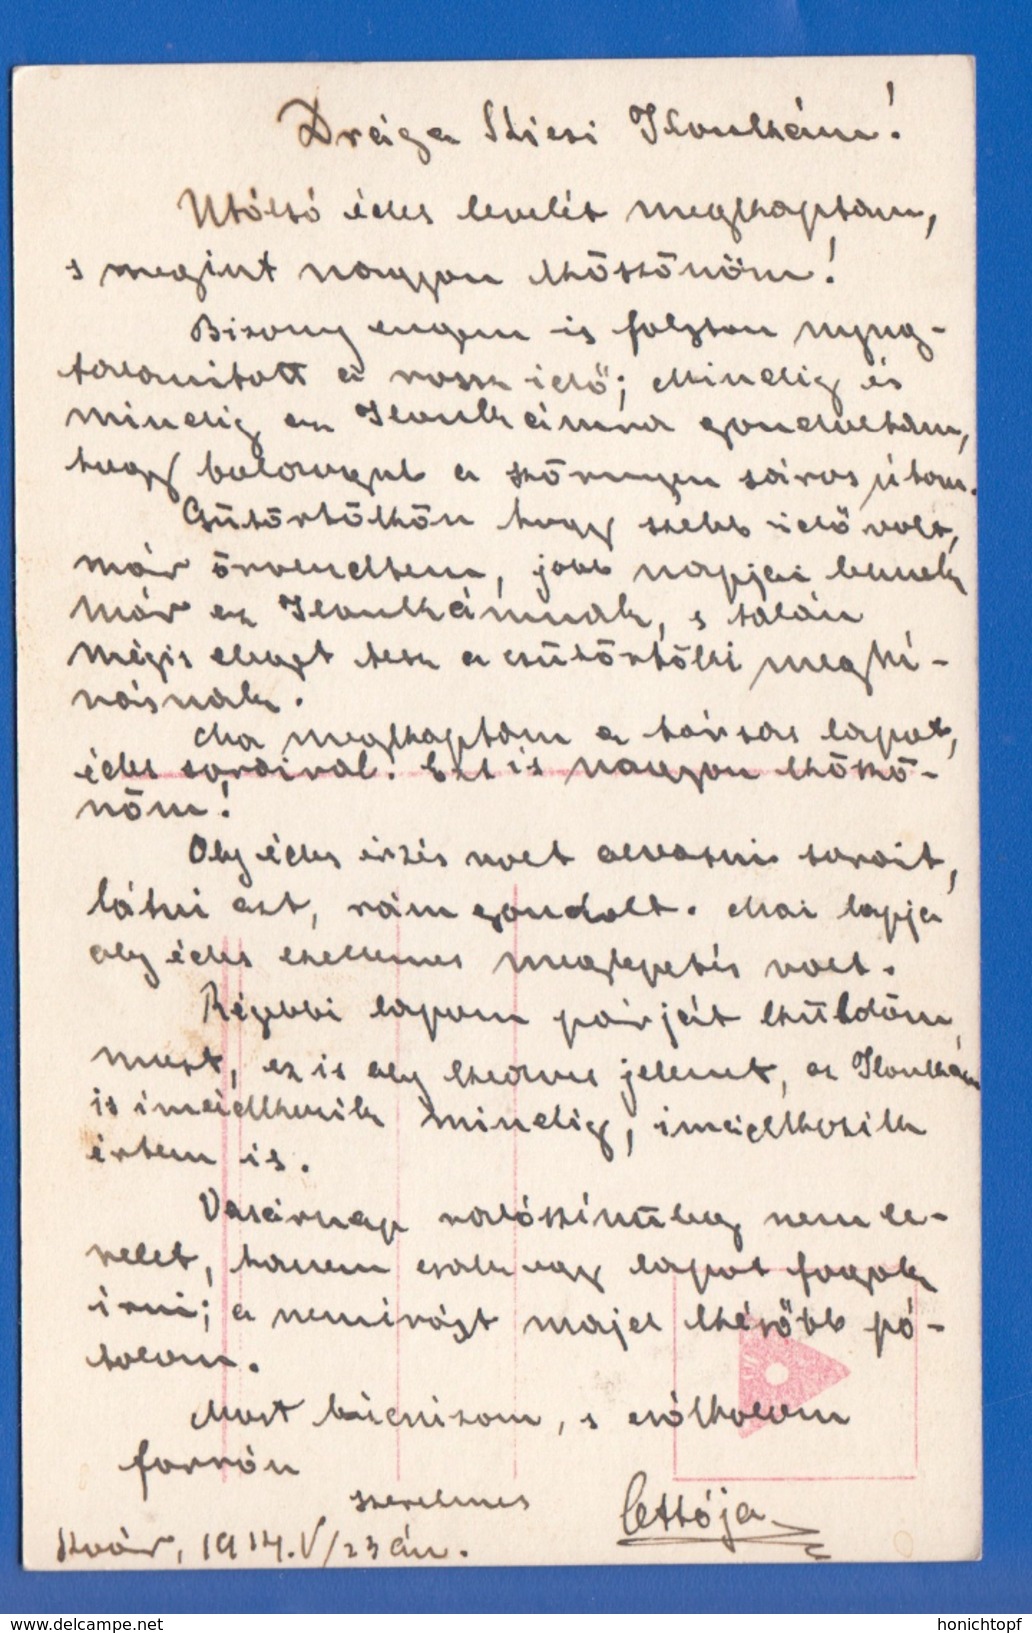 Drága Kicsi Ilonkám!
Utólsó édes levelét megkaptam,
s megint nagyon köszönöm!
Bizony engem is folyton nyug-
talanitott a rossz idő; Mindig és
mindig az Ilonkámra gondoltam,
hogy balavagol a szörnyen sáros útan.
Csütörtökön hogy szebb idő volt,
már örvendtem, jobb napjai lesznek
már az Ilonkámnak, s talán
mégis eleget tesz a csütörtöki meghí-
vásnak.
Ma megkaptam a társas lapot,
édes soraival. Ezt is nagyon köszö-
nöm!
Oly édes érzés volt olvasni sorait,
látni ezt, rám gondolt. Mai lapja
oly édes kellemes meglepetés volt.
Régebbi lapom párját küldöm
most, ez is oly kedves jelent, az Ilonkám
is imádkozik mindig, imádkozik
értem is.
Vasárnap valószínüleg nem le-
velet, hanem csak egy lapot fogok
írni; a nemirást majd később pó-
tolom.
Most búcsúzom, s csókolom
forrón
szerelmes
Kvár, 1914.V/23án.
www.delcampe.net
honichtopf